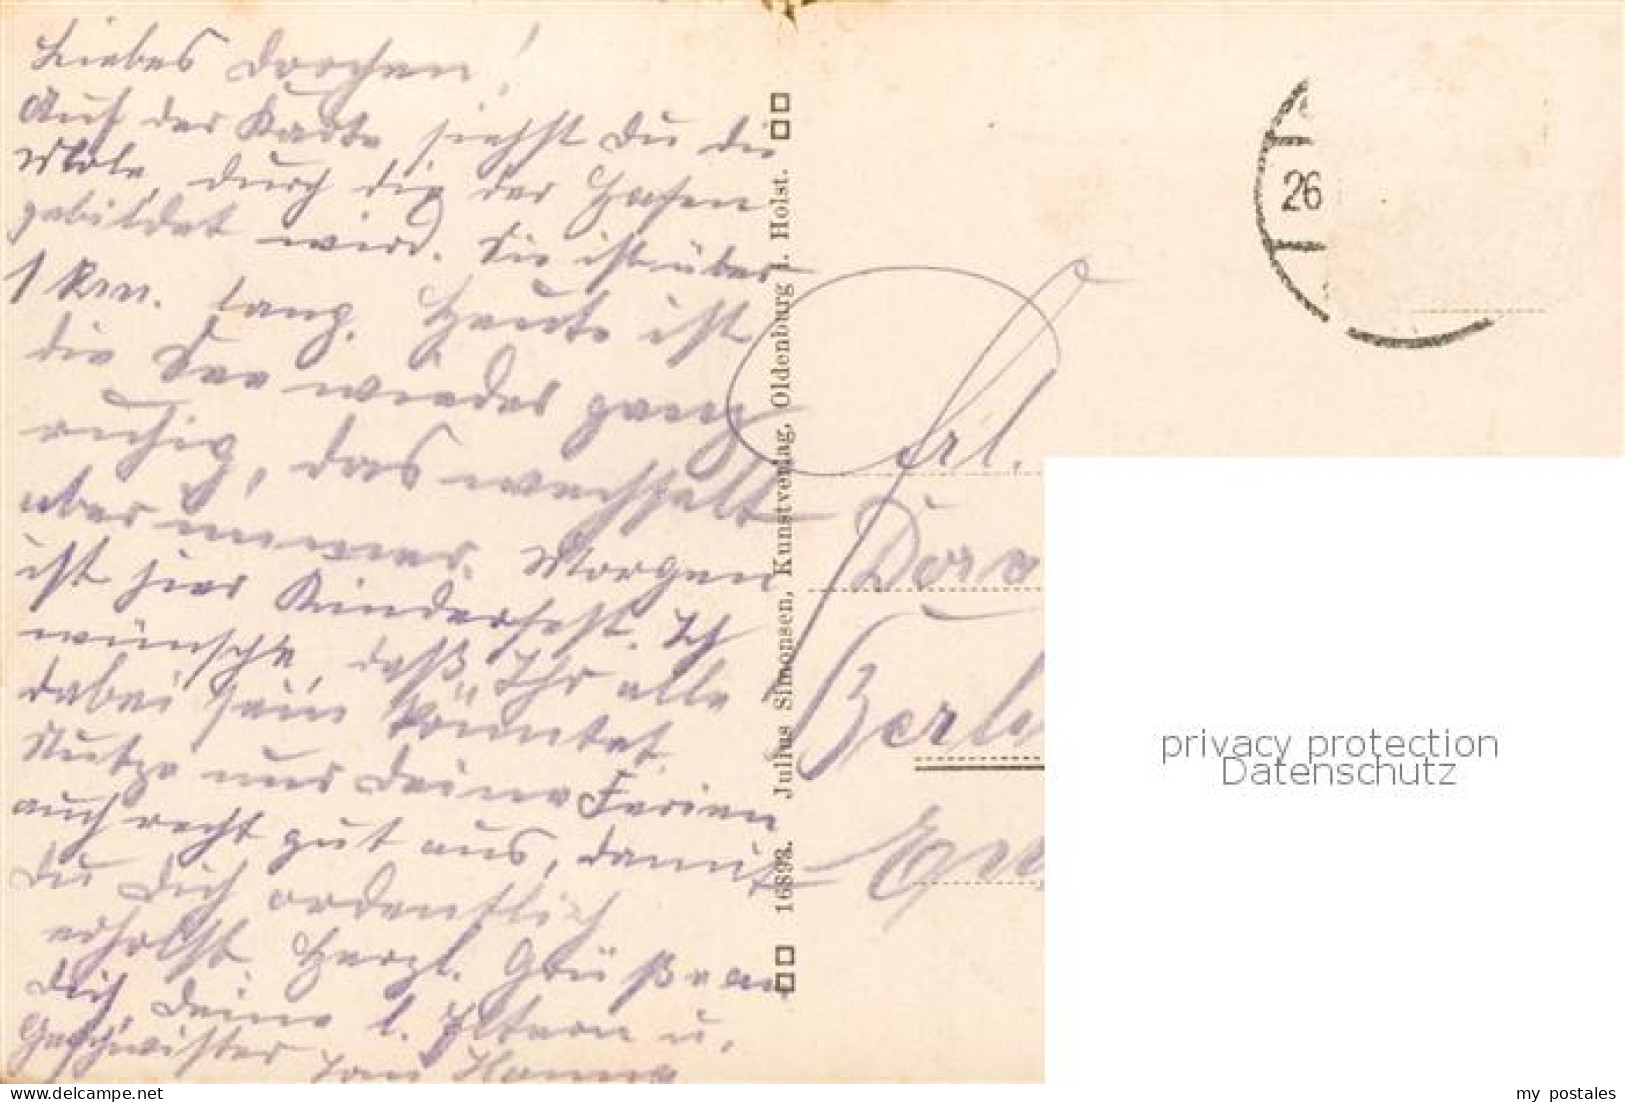 Liebes Dorchen!
Auf der Karte siehst Du die
Mole, durch die der Hafen
gebildet wird. Sie ist über
1 km. lang. Heute ist
die See wieder ganz
ruhig, das wechselt
aber immer. Morgen
ist hier Kinderfest. Ich
wünsche, daß Ihr alle
dabei sein könntet
Nutze nur Deine Ferien
auch recht gut aus, damit
Du Dich ordentlich
erholst. Herzl. Grüße an
Dich, Deine l. Eltern u.
Geschwister
16893. Julius Simonsen, Kunstverlag, Oldenburg i. Holst.
26
Frl.
Dora
Berl
privacy protection
Datenschutz
delcampe.net
my postales